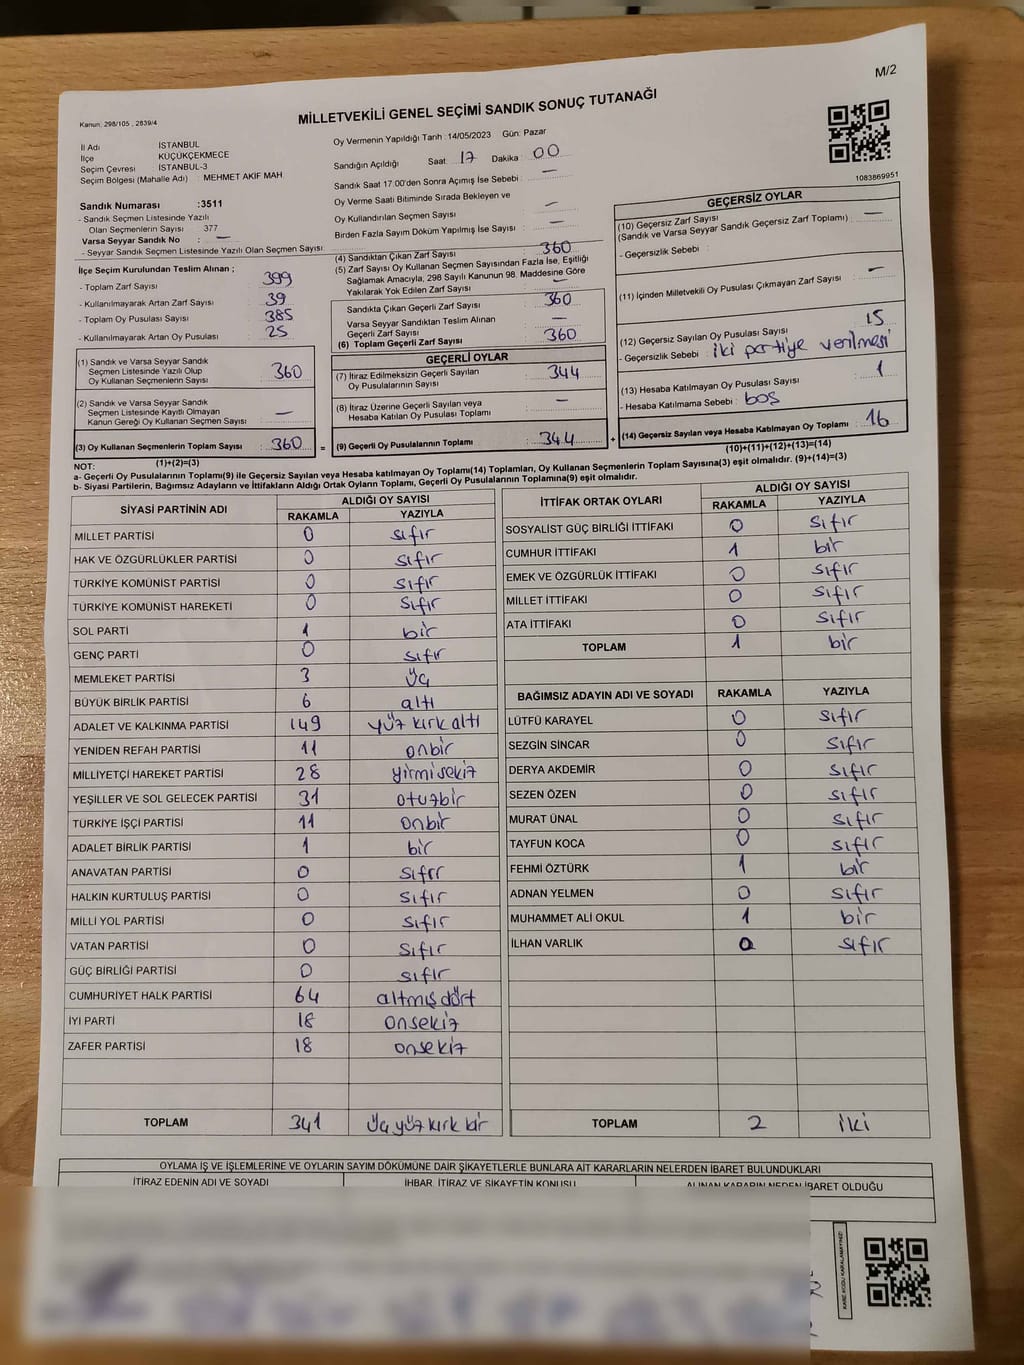 M/2
Kanun: 298/105 , 2839/4
MİLLETVEKİLİ GENEL SEÇİMİ SANDIK SONUÇ TUTANAĞI
İl Adı İSTANBUL
İlçe KÜÇÜKÇEKMECE
Seçim Çevresi İSTANBUL-3
Seçim Bölgesi (Mahalle Adı) : MEHMET AKİF MAH
Oy Vermenin Yapıldığı Tarih : 14/05/2023 Gün: Pazar
Sandığın Açıldığı Saat 17 Dakika 00
Sandık Saat 17:00'den Sonra Açımış İse Sebebi : —
Oy Verme Saati Bitiminde Sırada Bekleyen ve
Oy Kullandırılan Seçmen Sayısı —
Birden Fazla Sayım Döküm Yapılmış İse Sayısı : —
1083869951
Sandık Numarası :3511
- Sandık Seçmen Listesinde Yazılı
Olan Seçmenlerin Sayısı : 377
Varsa Seyyar Sandık No : —
- Seyyar Sandık Seçmen Listesinde Yazılı Olan Seçmen Sayısı:
İlçe Seçim Kurulundan Teslim Alınan ;
- Toplam Zarf Sayısı : 399
- Kullanılmayarak Artan Zarf Sayısı : 39
- Toplam Oy Pusulası Sayısı : 385
- Kullanılmayarak Artan Oy Pusulası : 25
(1) Sandık ve Varsa Seyyar Sandık
Seçmen Listesinde Yazılı Olup
Oy Kullanan Seçmenlerin Sayısı : 360
(2) Sandık ve Varsa Seyyar Sandık
Seçmen Listesinde Kayıtlı Olmayan
Kanun Gereği Oy Kullanan Seçmen Sayısı : —
(3) Oy Kullanan Seçmenlerin Toplam Sayısı : 360 =
(1)+(2)=(3)
(4) Sandıktan Çıkan Zarf Sayısı : 360
(5) Zarf Sayısı Oy Kullanan Seçmen Sayısından Fazla İse, Eşitliği
Sağlamak Amacıyla, 298 Sayılı Kanunun 98. Maddesine Göre
Yakılarak Yok Edilen Zarf Sayısı : —
Sandıkta Çıkan Geçerli Zarf Sayısı : 360
Varsa Seyyar Sandıktan Teslim Alınan
Geçerli Zarf Sayısı : —
(6) Toplam Geçerli Zarf Sayısı : 360
GEÇERLİ OYLAR
(7) İtiraz Edilmeksizin Geçerli Sayılan
Oy Pusulalarının Sayısı : 344
(8) İtiraz Üzerine Geçerli Sayılan veya
Hesaba Katılan Oy Pusulası Toplamı : —
(9) Geçerli Oy Pusulalarının Toplamı : 344 +
GEÇERSİZ OYLAR
(10) Geçersiz Zarf Sayısı
(Sandık ve Varsa Seyyar Sandık Geçersiz Zarf Toplamı) : —
- Geçersizlik Sebebi :
(11) İçinden Milletvekili Oy Pusulası Çıkmayan Zarf Sayısı : —
(12) Geçersiz Sayılan Oy Pusulası Sayısı : 15
- Geçersizlik Sebebi : iki partiye verilmesi
(13) Hesaba Katılmayan Oy Pusulası Sayısı : 1
- Hesaba Katılmama Sebebi : boş
(14) Geçersiz Sayılan veya Hesaba Katılmayan Oy Toplamı : 16
(10)+(11)+(12)+(13)=(14)
NOT:
a- Geçerli Oy Pusulalarının Toplamı(9) ile Geçersiz Sayılan veya Hesaba katılmayan Oy Toplamı(14) Toplamları, Oy Kullanan Seçmenlerin Toplam Sayısına(3) eşit olmalıdır. (9)+(14)=(3)
b- Siyasi Partilerin, Bağımsız Adayların ve İttifakların Aldığı Ortak Oyların Toplamı, Geçerli Oy Pusulalarının Toplamına(9) eşit olmalıdır.
SİYASİ PARTİNİN ADI ALDIĞI OY SAYISI
RAKAMLA YAZIYLA
MİLLET PARTİSİ 0 sıfır
HAK VE ÖZGÜRLÜKLER PARTİSİ 0 sıfır
TÜRKİYE KOMÜNİST PARTİSİ 0 sıfır
TÜRKİYE KOMÜNİST HAREKETİ 0 sıfır
SOL PARTİ 1 bir
GENÇ PARTİ 0 sıfır
MEMLEKET PARTİSİ 3 üç
BÜYÜK BİRLİK PARTİSİ 6 altı
ADALET VE KALKINMA PARTİSİ 149 yüz kırk altı
YENİDEN REFAH PARTİSİ 11 onbir
MİLLİYETÇİ HAREKET PARTİSİ 28 yirmisekiz
YEŞİLLER VE SOL GELECEK PARTİSİ 31 otuzbir
TÜRKİYE İŞÇİ PARTİSİ 11 onbir
ADALET BİRLİK PARTİSİ 1 bir
ANAVATAN PARTİSİ 0 sıfır
HALKIN KURTULUŞ PARTİSİ 0 sıfır
MİLLİ YOL PARTİSİ 0 sıfır
VATAN PARTİSİ 0 sıfır
GÜÇ BİRLİĞİ PARTİSİ 0 sıfır
CUMHURİYET HALK PARTİSİ 64 altmış dört
İYİ PARTİ 18 onsekiz
ZAFER PARTİSİ 18 onsekiz
TOPLAM 341 üç yüz kırk bir
İTTİFAK ORTAK OYLARI ALDIĞI OY SAYISI
RAKAMLA YAZIYLA
SOSYALİST GÜÇ BİRLİĞİ İTTİFAKI 0 sıfır
CUMHUR İTTİFAKI 1 bir
EMEK VE ÖZGÜRLÜK İTTİFAKI 0 sıfır
MİLLET İTTİFAKI 0 sıfır
ATA İTTİFAKI 0 sıfır
TOPLAM 1 bir
BAĞIMSIZ ADAYIN ADI VE SOYADI RAKAMLA YAZIYLA
LÜTFÜ KARAYEL 0 sıfır
SEZGİN SİNCAR 0 sıfır
DERYA AKDEMİR 0 sıfır
SEZEN ÖZEN 0 sıfır
MURAT ÜNAL 0 sıfır
TAYFUN KOCA 0 sıfır
FEHMİ ÖZTÜRK 1 bir
ADNAN YELMEN 0 sıfır
MUHAMMET ALİ OKUL 1 bir
İLHAN VARLIK 0 sıfır
TOPLAM 2 iki
OYLAMA İŞ VE İŞLEMLERİNE VE OYLARIN SAYIM DÖKÜMÜNE DAİR ŞİKAYETLERLE BUNLARA AİT KARARLARIN NELERDEN İBARET BULUNDUKLARI
İTİRAZ EDENİN ADI VE SOYADI İHBAR, İTİRAZ VE ŞİKAYETİN KONUSU ALINAN KARARIN NEDEN İBARET OLDUĞU
KARE KODU KARALAMAYINIZ!